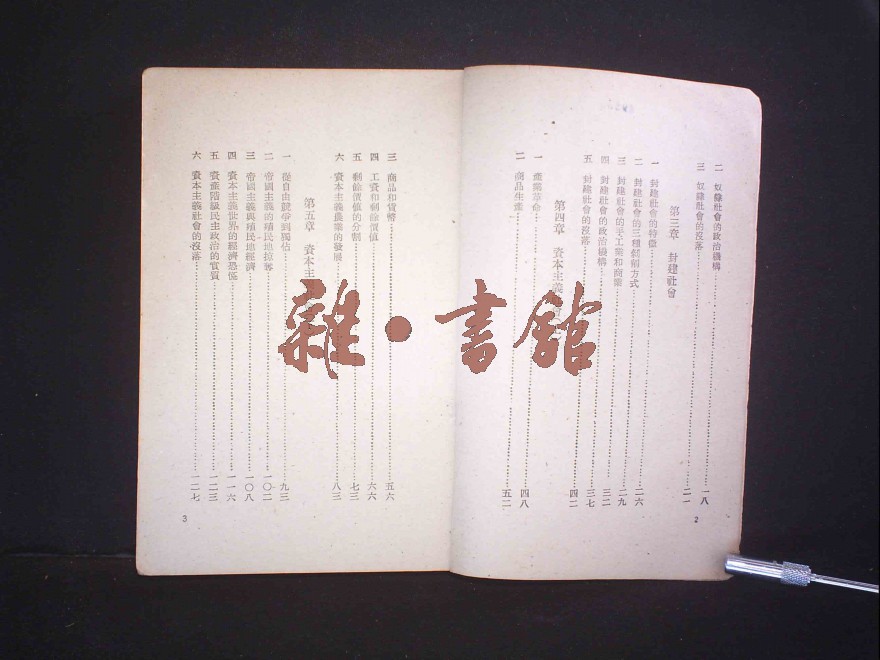 二 奴隸社會的政治機構 一八
三 奴隸社會的沒落 二一
第三章 封建社會
一 封建社會的特徵 二六
二 封建社會的三種剝削方式
三 封建社會的手工業和商業 二九
四 封建社會的政治機構 三二
五 封建社會的沒落 三七
四二
第四章 資本主義
一 產業革命 四八
二 商品生產 五二
2
三 商品和貨幣 五六
四 工資和剩餘價值 六六
五 剩餘價值的分割 七三
六 資本主義農業的發展 八三
第五章 資本主
一 從自由競爭到獨佔 九三
二 帝國主義的殖民地掠奪 一〇二
三 帝國主義與殖民地經濟 一〇八
四 資本主義世界的經濟恐慌 一一六
五 資產階級民主政治的實質 一二三
六 資本主義社會的沒落 一二七
3
雜·書館